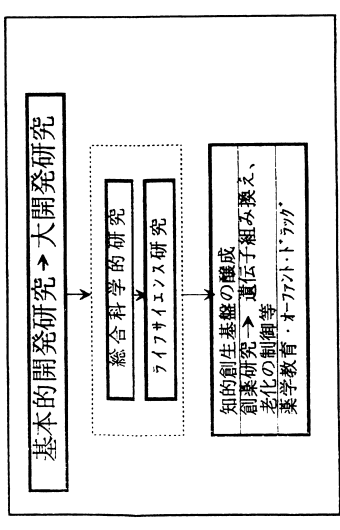 基本的開発研究→大開発研究
総合科学的研究
ライフサイエンス研究
知的創生基盤の醸成
創薬研究→遺伝子組み換え、
老化の制御等
薬学教育・オーファント・ドラッグ